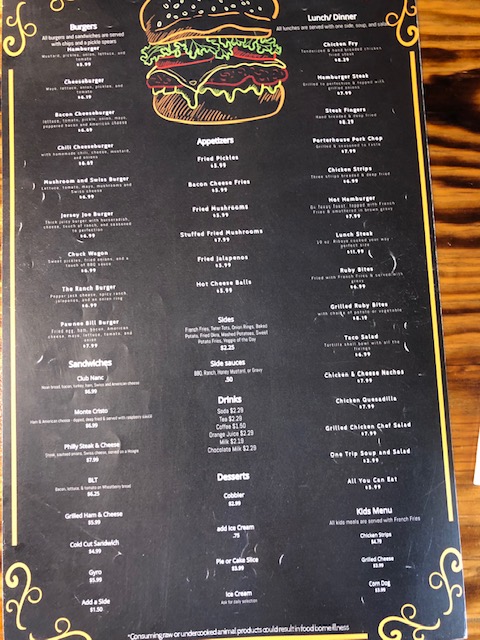 Burgers
All burgers and sandwiches are served
with chips and a pickle spears
Hamburger
Mustard, pickles, onion, lettuce, and
tomato
$5.99
Cheeseburger
Mayo, lettuce, onion, pickles, and
tomato
$6.39
Bacon Cheeseburger
lettuce, tomato, pickle, onion, mayo,
peppered bacon and American cheese
$6.69
Chili Cheeseburger
with homemade chili, cheese, mustard,
and onions
$6.69
Mushroom and Swiss Burger
Lettuce, tomato, mayo, mushrooms and
Swiss cheese
$6.99
Jersey Joe Burger
Thick juicy burger with horseradish,
cheese, touch of ranch, and seasoned
to perfection
$6.99
Chuck Wagon
Sweet pickles, fried onions, and a
touch of BBQ sauce
$6.99
The Ranch Burger
Pepper jack cheese, spicy ranch,
jalapenos, and an onion ring
$6.99
Pawnee Bill Burger
Fried egg, ham, bacon, American
cheese, mayo, lettuce, tomato, and
onion
$7.99
Sandwiches
Club Nanc
Texas bread, bacon, turkey, ham, Swiss and American cheese
$6.99
Monte Cristo
Ham & American cheese - dipped, deep fried & served with raspberry sauce
$6.99
Philly Steak & Cheese
Steak, sauteed onions, Swiss cheese, served on a Hoagie
$7.99
BLT
Bacon, lettuce, & tomato on Wheatberry bread
$6.25
Grilled Ham & Cheese
$5.99
Cold Cut Sandwich
$4.99
Gyro
$5.99
Add a Side
$1.50
Appetizers
Fried Pickles
$5.99
Bacon Cheese Fries
$5.99
Fried Mushrooms
$5.99
Stuffed Fried Mushrooms
$7.99
Fried Jalapenos
$5.99
Hot Cheese Balls
$5.99
Sides
French Fries, Tater Tots, Onion Rings, Baked
Potato, Fried Okra, Mashed Potatoes, Sweet
Potato Fries, Veggie of the Day
$2.25
Side sauces
BBQ, Ranch, Honey Mustard, or Gravy
.50
Drinks
Soda $2.29
Tea $2.29
Coffee $1.50
Orange Juice $2.29
Milk $2.19
Chocolate Milk $2.29
Desserts
Cobbler
$2.99
add Ice Cream
.75
Pie or Cake Slice
$3.99
Ice Cream
Ask for daily selection
Lunch/ Dinner
All lunches are served with one side, soup, and salad
Chicken Fry
Tenderized & hand breaded chicken
fried steak
$8.29
Hamburger Steak
Grilled to perfection & topped with
grilled onions
$7.99
Steak Fingers
Hand breaded & Deep fried
$8.29
Porterhouse Pork Chop
Grilled & seasoned to taste
$7.99
Chicken Strips
Three strips breaded & deep fried
$6.99
Hot Hamburger
On Texas Toast, topped with French
Fries & smothered in brown gravy
$7.99
Lunch Steak
10 oz. Ribeye cooked your way
perfect size
$11.99
Ruby Bites
Fried with French Fries & served with
gravy
$6.99
Grilled Ruby Bites
with choice of potato or vegetable
$8.19
Taco Salad
Tortilla shell bowl with all the
fixings
$6.99
Chicken & Cheese Nachos
$7.99
Chicken Quesadilla
$7.99
Grilled Chicken Chef Salad
$7.99
One Trip Soup and Salad
$3.99
All You Can Eat
$5.99
Kids Menu
All kids meals are served with French Fries
Chicken Strips
$4.79
Grilled Cheese
$3.99
Corn Dog
$3.99
*Consuming raw or undercooked animal products could result in food borne illness